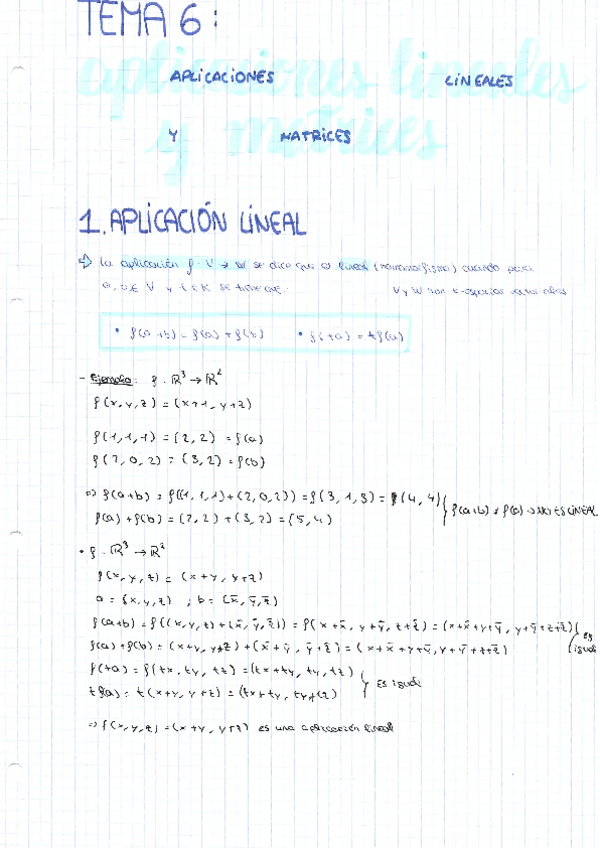 TEMA 6:
aplicaciones lineales
APLICACIONES LINEALES
y matrices
Y MATRICES
1. APLICACIÓN LINEAL
⇒ La aplicación f: V → W se dice que es lineal (homomorfismo) cuando para
a, b ∈ V y t ∈ K se tiene que: V y W son K-espacios vectoriales
• f(a+b) = f(a) + f(b) • f(ta) = tf(a)
- Ejemplo: f: ℝ³ → ℝ²
f(x,y,z) = (x+1, y+z)
f(1,1,1) = (2,2) = f(a)
f(2,0,2) = (3,2) = f(b)
⇒ f(a+b) = f((1,1,1)+(2,0,2)) = f(3,1,3) = f(4,4) } f(a+b) ≠ f(a) → NO ES LINEAL
f(a)+f(b) = (2,2)+(3,2) = (5,4)
• f: ℝ³ → ℝ²
f(x,y,z) = (x+y, y+z)
a = (x,y,z) ; b = (x̄,ȳ,z̄)
f(a+b) = f((x,y,z)+(x̄,ȳ,z̄)) = f(x+x̄, y+ȳ, z+z̄) = (x+x̄+y+ȳ, y+ȳ+z+z̄) } es
f(a)+f(b) = (x+y, y+z) + (x̄+ȳ, ȳ+z̄) = (x+x̄+y+ȳ, y+ȳ+z+z̄) igual
f(ta) = f(tx, ty, tz) = (tx+ty, ty, tz) } es igual
tf(a) = t(x+y, y+z) = (tx+ty, ty+tz)
⇒ f(x,y,z) = (x+y, y+z) es una aplicación lineal